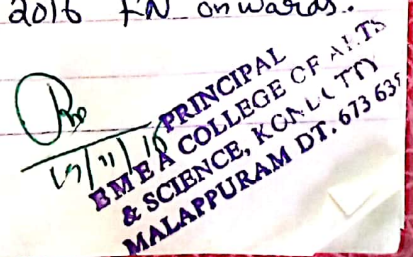 2016 FN onwards.
PRINCIPAL
EMEA COLLEGE OF ARTS
& SCIENCE, KONDOTTY
MALAPPURAM DT. 673 635